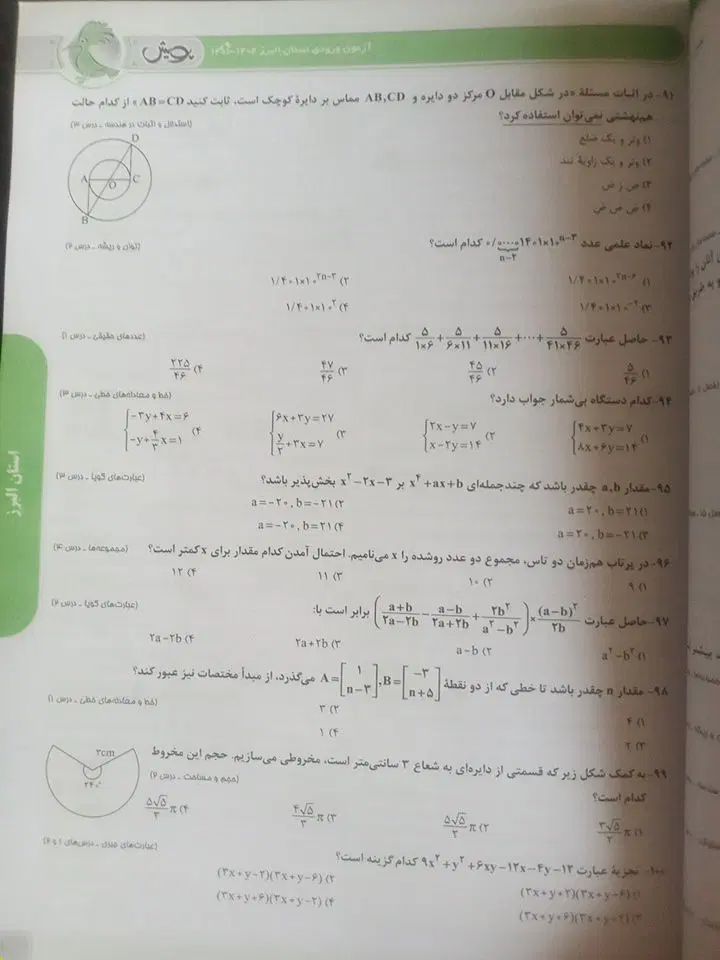 آزمون ورودی استان البرز
پویش
۹۱- در اثبات مسئلهٔ «در شکل مقابل O مرکز دو دایره و AB,CD مماس بر دایرهٔ کوچک است. ثابت کنید AB=CD» از کدام حالت
هم‌نهشتی نمی‌توان استفاده کرد؟
(استدلال و اثبات در هندسه ـ درس ۳)
۱) وتر و یک ضلع
۲) وتر و یک زاویهٔ تند
۳) ض ز ض
۴) ض ض ض
D
A O C
B
۹۲- نماد علمی عدد ۰/۰۰۰۰۰۱۴۰۱×۱۰^{n-۳} کدام است؟
n-۲
(توان و ریشه ـ درس ۲)
۱) ۱/۴۰۱×۱۰^{۲n-۶}
۲) ۱/۴۰۱×۱۰^{۲n-۳}
۳) ۱/۴۰۱×۱۰^{-۲}
۴) ۱/۴۰۱×۱۰^{۲}
۹۳- حاصل عبارت ۵/(۱×۶) + ۵/(۶×۱۱) + ۵/(۱۱×۱۶) + ... + ۵/(۴۱×۴۶) کدام است؟
(عددهای حقیقی ـ درس ۱)
۱) ۵/۴۶
۲) ۴۵/۴۶
۳) ۴۷/۴۶
۴) ۲۲۵/۴۶
۹۴- کدام دستگاه بی‌شمار جواب دارد؟
(خط و معادله‌های خطی ـ درس ۳)
۱) ۴x+۳y=۷
۸x+۶y=۱۴
۲) ۲x-y=۷
x-۲y=۱۴
۳) ۶x+۳y=۲۷
y/۲+۳x=۷
۴) -۳y+۴x=۶
-y+۴/۳x=۱
۹۵- مقدار a,b چقدر باشد که چندجمله‌ای x^۴+ax+b بر x^۲-۲x-۳ بخش‌پذیر باشد؟
(عبارت‌های گویا ـ درس ۳)
۱) a=۲۰, b=۲۱
۲) a=-۲۰, b=-۲۱
۳) a=۲۰, b=-۲۱
۴) a=-۲۰, b=۲۱
۹۶- در پرتاب هم‌زمان دو تاس، مجموع دو عدد روشده را x می‌نامیم. احتمال آمدن کدام مقدار برای x کمتر است؟
(مجموعه‌ها ـ درس ۴)
۱) ۹
۲) ۱۰
۳) ۱۱
۴) ۱۲
۹۷- حاصل عبارت ((a+b)/(۲a-۲b) - (a-b)/(۲a+۲b) + ۲b^۲/(a^۲-b^۲)) × (a-b)^۲/۲b برابر است با:
(عبارت‌های گویا ـ درس ۲)
۱) a^۲-b^۲
۲) a-b
۳) ۲a+۲b
۴) ۲a-۲b
۹۸- مقدار n چقدر باشد تا خطی که از دو نقطهٔ A=[۱ n-۳], B=[-۳ n+۵] می‌گذرد، از مبدأ مختصات نیز عبور کند؟
(خط و معادله‌های خطی ـ درس ۱)
۱) ۴
۲) ۳
۳) ۲
۴) ۱
۹۹- به کمک شکل زیر که قسمتی از دایره‌ای به شعاع ۳ سانتی‌متر است، مخروطی می‌سازیم. حجم این مخروط
کدام است؟
(حجم و مساحت ـ درس ۲)
۳cm
۲۴۰°
۱) ۳√۵/۲ π
۲) ۵√۵/۲ π
۳) ۴√۵/۳ π
۴) ۵√۵/۳ π
۱۰۰- تجزیهٔ عبارت ۹x^۲+y^۲+۶xy-۱۲x-۴y-۱۲ کدام گزینه است؟
(عبارت‌های جبری ـ درس‌های ۱ و ۲)
۱) (۳x+y+۲)(۳x+y-۶)
۲) (۳x+y-۲)(۳x+y-۶)
۳) (۳x+y+۶)(۳x+y+۲)
۴) (۳x+y+۶)(۳x+y-۲)
استان البرز